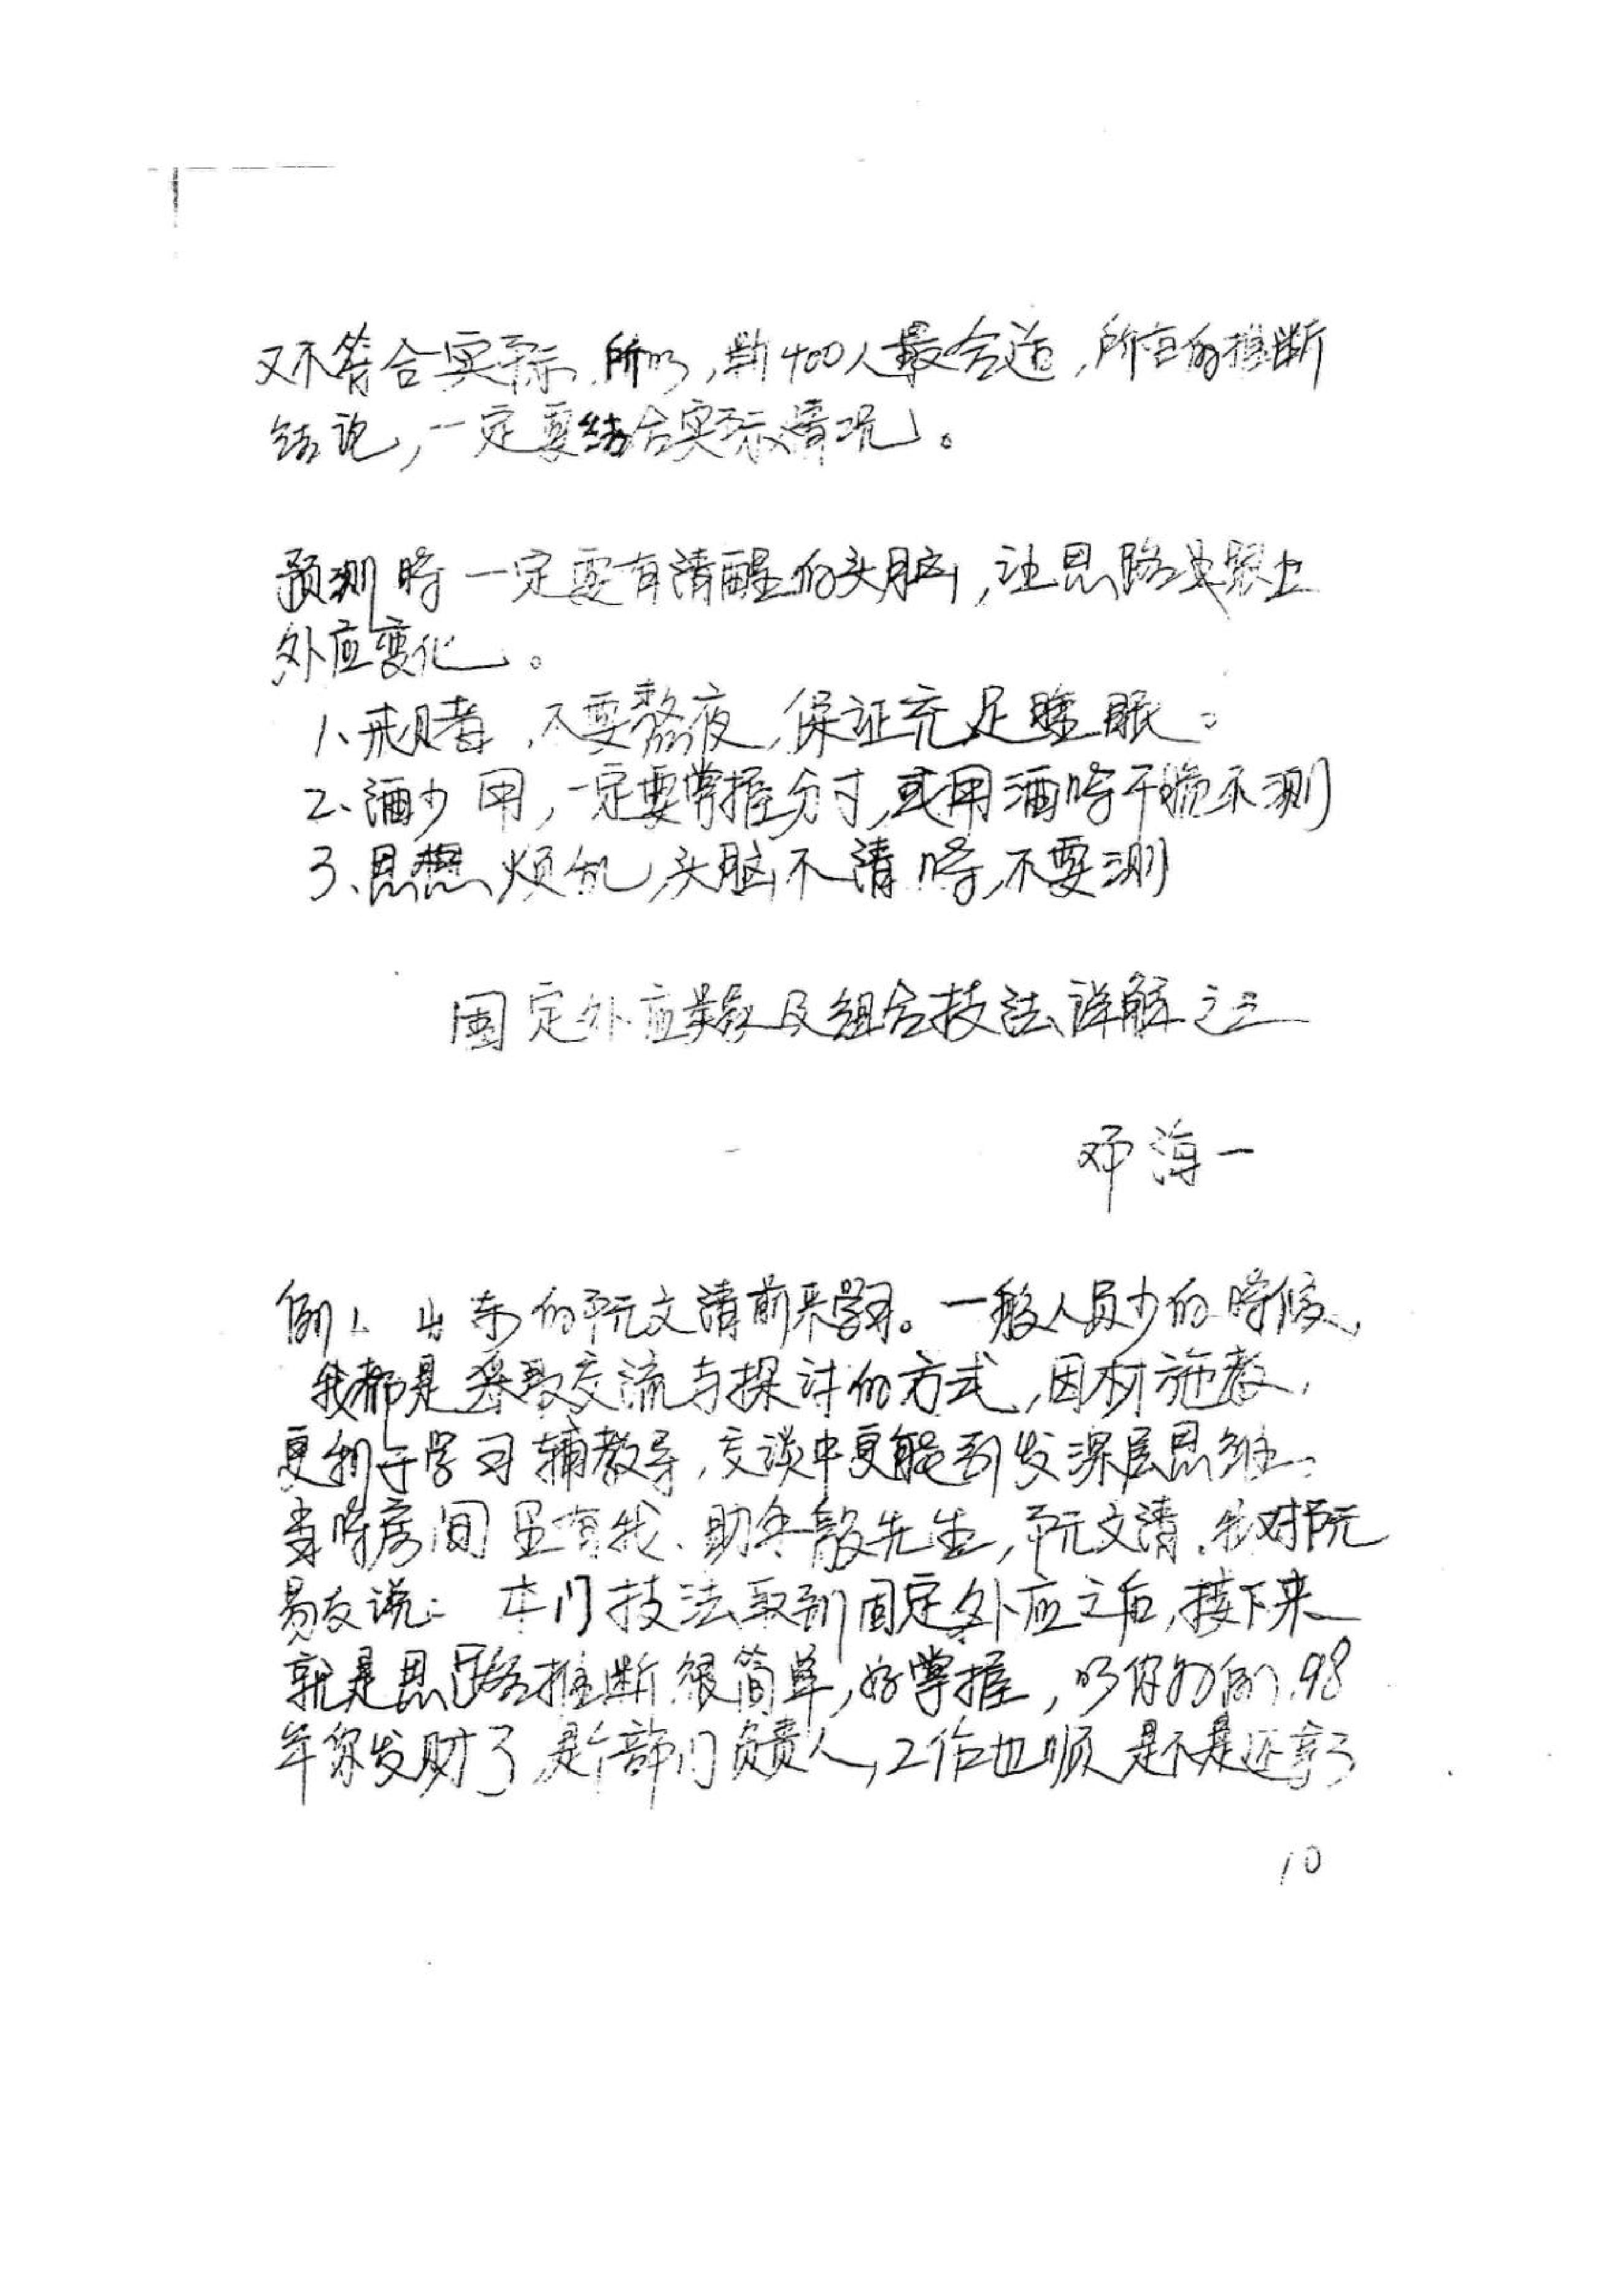 又不符合实际,所以,断400人最合适,所有的推断
结论,一定要结合实际情况。
预测时一定要有清醒的头脑,让思路跟上
外应变化。
1、戒赌,不要熬夜,保证充足睡眠。
2、酒少用,一定要掌握分寸,或用酒时干脆不测
3、思想烦乱,头脑不清时,不要测
固定外应类象及组合技法详解之三
邓海一
例1、山东的阮文清前来学习。一般人员少的时候,
我都是采取交流与探讨的方式,因材施教,
更利于学习辅教导,交谈中更能引发深层思维。
当时房间里有我、助手殷先生,阮文清,我对阮
易友说:本门技法取到固定外应之后,接下来
就是思路推断很简单,好掌握,以你为例,98
年你发财了,是个部门负责人,工作也顺是不是还拿了
10